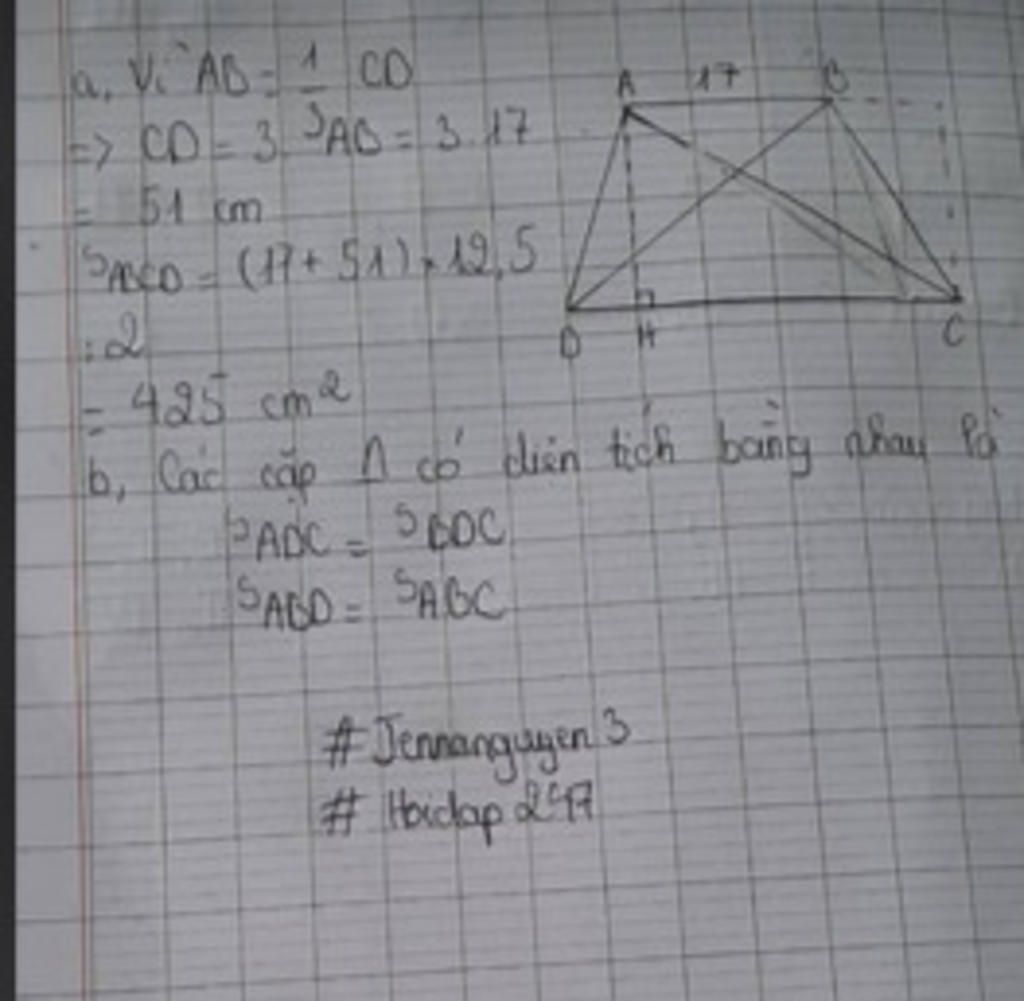 a, Vì AB = 1/3 CD
=> CD = 3 AB = 3.17
= 51 cm
SABCD = (17 + 51) . 12,5
: 2
= 425 cm²
A 17 B
D H C
b, Các cặp Δ có diện tích bằng nhau là
SADC = SBDC
SABD = SABC
# Jennanguyen 3
# Hoidap 247